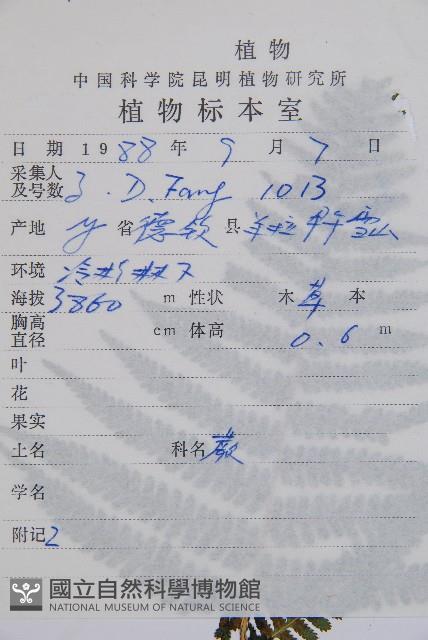 植物
中国科学院昆明植物研究所
植物标本室
日期 1988年 9月 7日
采集人及号数 Z. D. Fang 1013
产地 Y 省 德钦 县 羊拉 甲午雪山
环境 冷杉林下
海拔 3860 m 性状 木 草 本
胸高直径 cm 体高 0.6 m
叶
花
果实
土名 科名 蕨
学名
附记 2
國立自然科學博物館
NATIONAL MUSEUM OF NATURAL SCIENCE